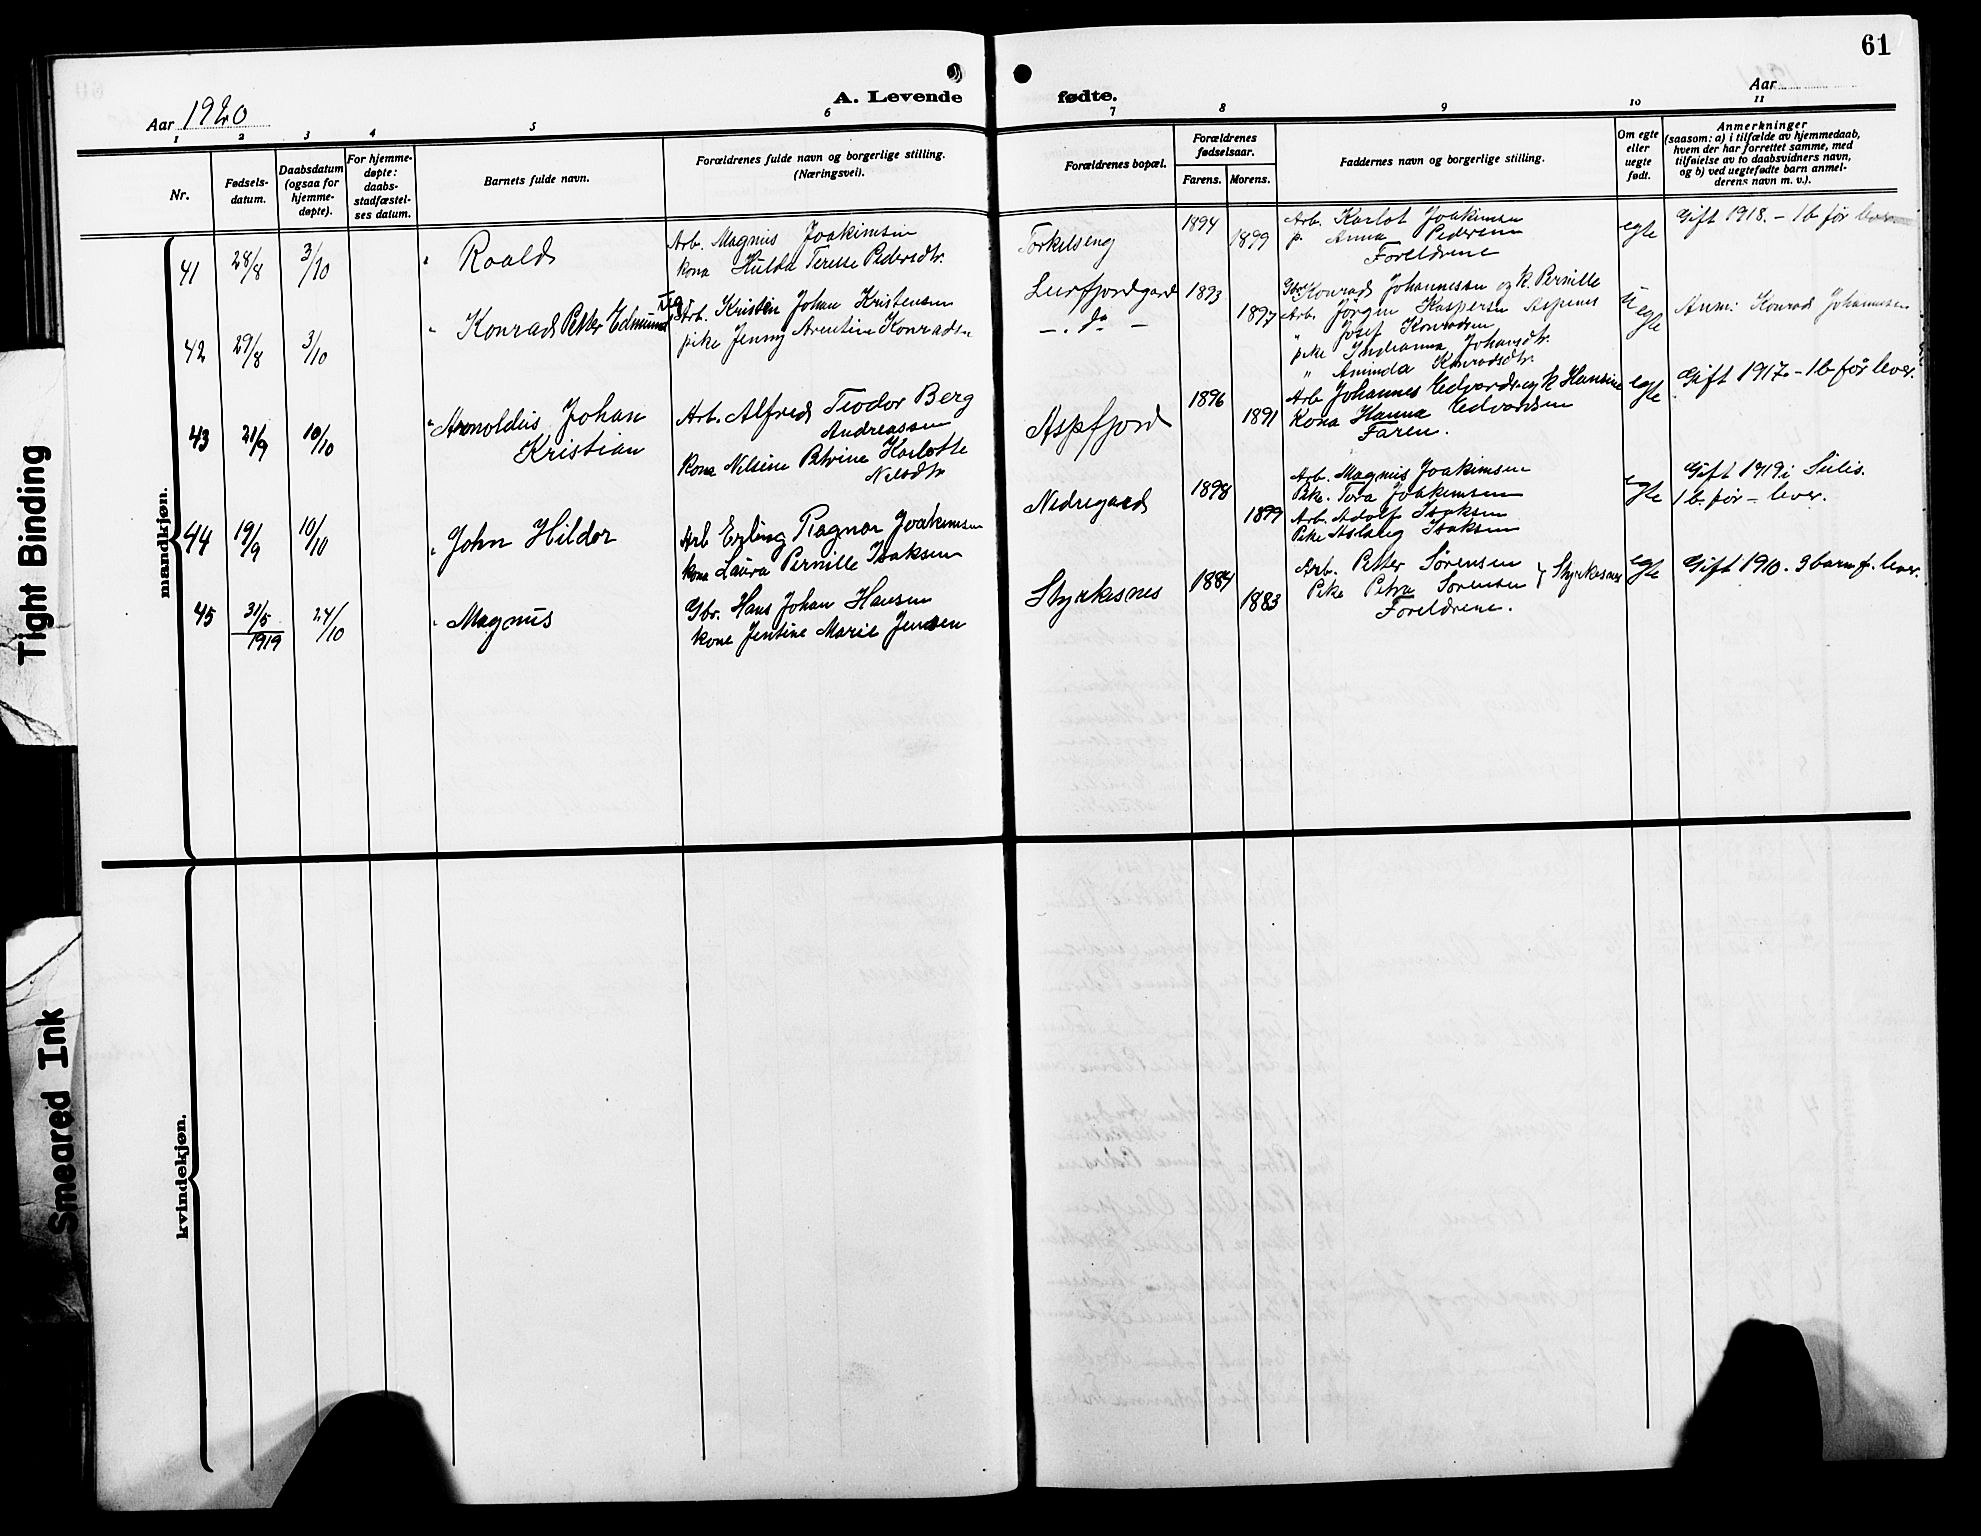 61
Aar 1920
A. Levende fødte.
Aar
1 2 3 4 5 6 7 8 9 10 11
Nr.
Fødsels-
datum.
Daabsdatum
(ogsaa for
hjemme-
døpte).
For hjemme-
døpte:
daabs-
stadfæstel-
ses datum.
Barnets fulde navn.
Forældrenes fulde navn og borgerlige stilling.
(Næringsvei).
Forældrenes bopæl.
Forældrenes
fødselsaar.
Farens. Morens.
Faddernes navn og borgerlige stilling.
Om egte
eller
uegte
født.
Anmerkninger
(saasom: a) i tilfælde av hjemmedaab,
hvem der har forrettet samme, med
tilføielse av to daabsvidners navn,
og b) ved uegtefødte barn anmel-
derens navn m. v.).
mandkjøn.
41 28/8 3/10 Roald
Arb. Magnus Joakimsen
kona Hulda Terese Pedersdtr.
Torkelseng 1894 1899
Arb. Karlot Joakimsen
p. Anna Pedersen
Foreldrene
egte
Gift 1918. - 1 b før lever
42 29/8 3/10 Konrad Petter Edmund
Arb. Kristian Johan Kristensen
pike Jenny Arentine Konradsen
Leirfjordgard 1893
- . do - 1897
Gbr. Konrad Johannessen og k. Pernille
Arb. Jörgen Kaspersen Aspenes
" Josef Konradsen
pike Indianna Johansdtr.
" Aminda Konradsdtr.
Uegte
Anm: Konrad Johannesen
43 21/9 10/10 Arnoldus Johan
Kristian
Arb. Alfred Teodor Berg
Andreassen
kona Nilsine Petrine Karlotte
Nilsdtr
Aspfjord 1896 1891
Arb Johannes Edvards. og k Hansine
Kona Hanna Edvardsen
Faren.
egte
Gift 1917. - 1 b før lever.
44 19/9 10/10 John Hildor
Arb Erling Ragnar Joakimsen
kona Laura Pernille Isaksen
Nedregaard 1898 1899
Arb. Magnus Joakimsen
Pike. Tora Joakimsen
Arb. Adolf Isaksen
Pike Aslaug Isaksen
egte
Gift 1919 i Sulis.
1 b. før - lever.
45 31/5 1919 24/10 Magnus
Gbr. Hans Johan Hansen
kone Jentine Marie Jensen
Styrkesnes 1884 1883
Arb. Petter Sørensen
Pike Petra Sørensen } Styrkesnes
Foreldrene.
egte
Gift 1910. 3 barn f. lever.
kvindekjøn.
Tight Binding
Smeared Ink